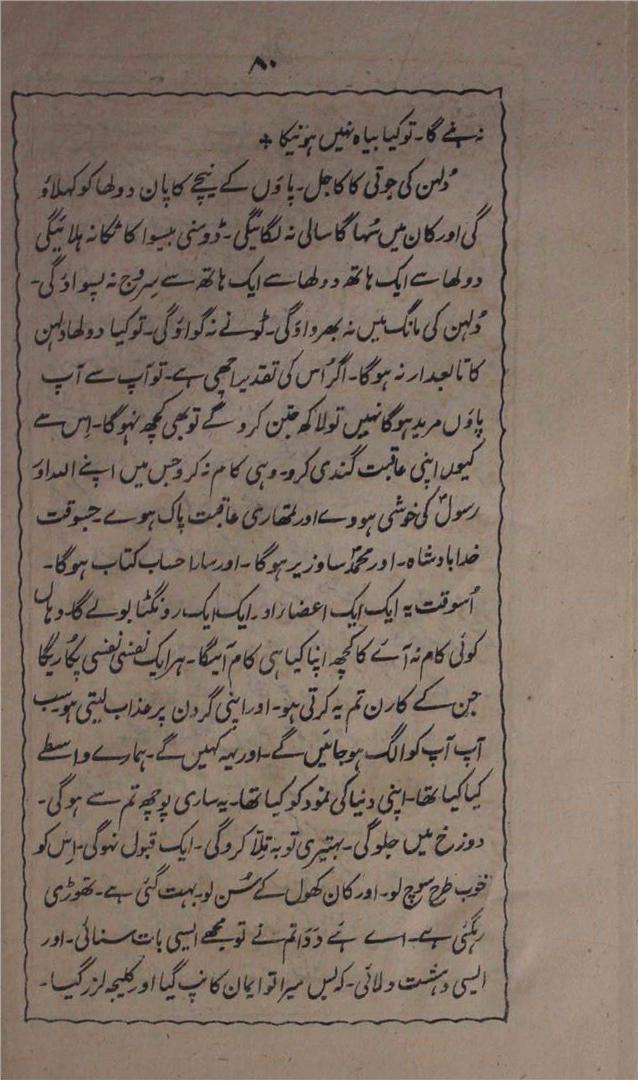 ۸۰
نہ بنے گا۔ توکیا بیاہ نہیں ہونیکا ٭
دُلہن کی جوتی کا کاجل۔ پاؤں کے نیچے کا پان دولھا کو کہلاؤ
گی اور کان میں سُہاگا سالی نہ لگائیگی۔ ڈومنی بیسوا کا ٹکا نہ ہلائیگی
دولھا سے ایک ہاتھ دولھا سے ایک ہاتھ سے مرچ نہ پسواؤگی۔
دُلہن کی مانگ میں نہ بھرواؤگی۔ ٹونے نہ گواؤگی۔ توکیا دولھا دلہن
کا تابعدار نہ ہوگا۔ اگر اُس کی تقدیر اچھی ہے۔ تو آپ سے آپ
پاؤں مرید ہوگا نہیں تو لاکھ جتن کروگے تو بھی کچھ نہوگا۔ اِس سے
کیوں اپنی عاقبت گندی کرو۔ وہی کام نہ کرو جس میں اپنے اللہ اور
رسولؐ کی خوشی ہووے اور تمھاری عاقبت پاک ہووے جسوقت
خدا بادشاہ۔ اور محمدؐ سا وزیر ہوگا۔ اور سارا حساب کتاب ہوگا۔
اُسوقت یہ ایک ایک اعضا اور ایک ایک رونگٹا بولے گا۔ وہاں
کوئی کام نہ آئے گا کچھ اپنا کیا ہی کام آئیگا۔ ہر ایک نفسی نفسی پکاریگا
جن کے کارن تم یہ کرتی ہو۔ اور اپنی گردن پر عذاب لیتی ہو سب
آپ آپ کو الگ ہو جائیں گے۔ اور یہہ کہیں گے۔ ہمارے واسطے
کیا کیا تھا۔ اپنی دنیا کی نمود کو کیا تھا۔ یہ ساری پوچھ تم سے ہوگی۔
دوزخ میں جلوگی۔ بہتیری توبہ تلا کروگی۔ ایک قبول نہوگی۔ اِس کو
خوب طرح سوچ لو۔ اور کان کھول کے سُن لو بہت گئی ہے۔ تھوڑی
رہگئی ہے۔ اے ہے دَدا تم نے تو مجھے ایسی بات سنائی۔ اور
ایسی دہشت دلائی۔ کہ بس میرا تو ایمان کانپ گیا اور کلیجہ لرز گیا۔